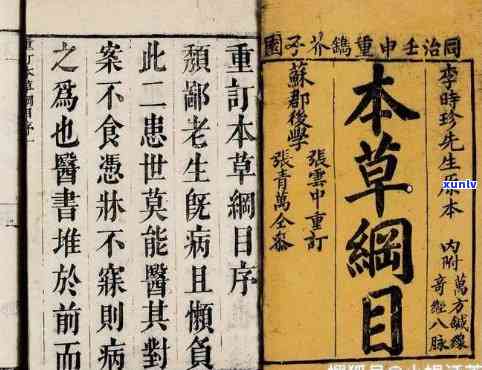 同治壬申重鐫芥子園
李時珍先生原本
內附
萬方鍼線
奇經八脈
本草綱目
蘇郡後學
張雲中重訂
張青萬全參
重訂本草綱目序
頽鄙老生旣病且懶負
此二患世莫能醫其對
案不食憑牀不寐則病
之爲也醫書堆於前而
重訂本草綱目序
xunlv